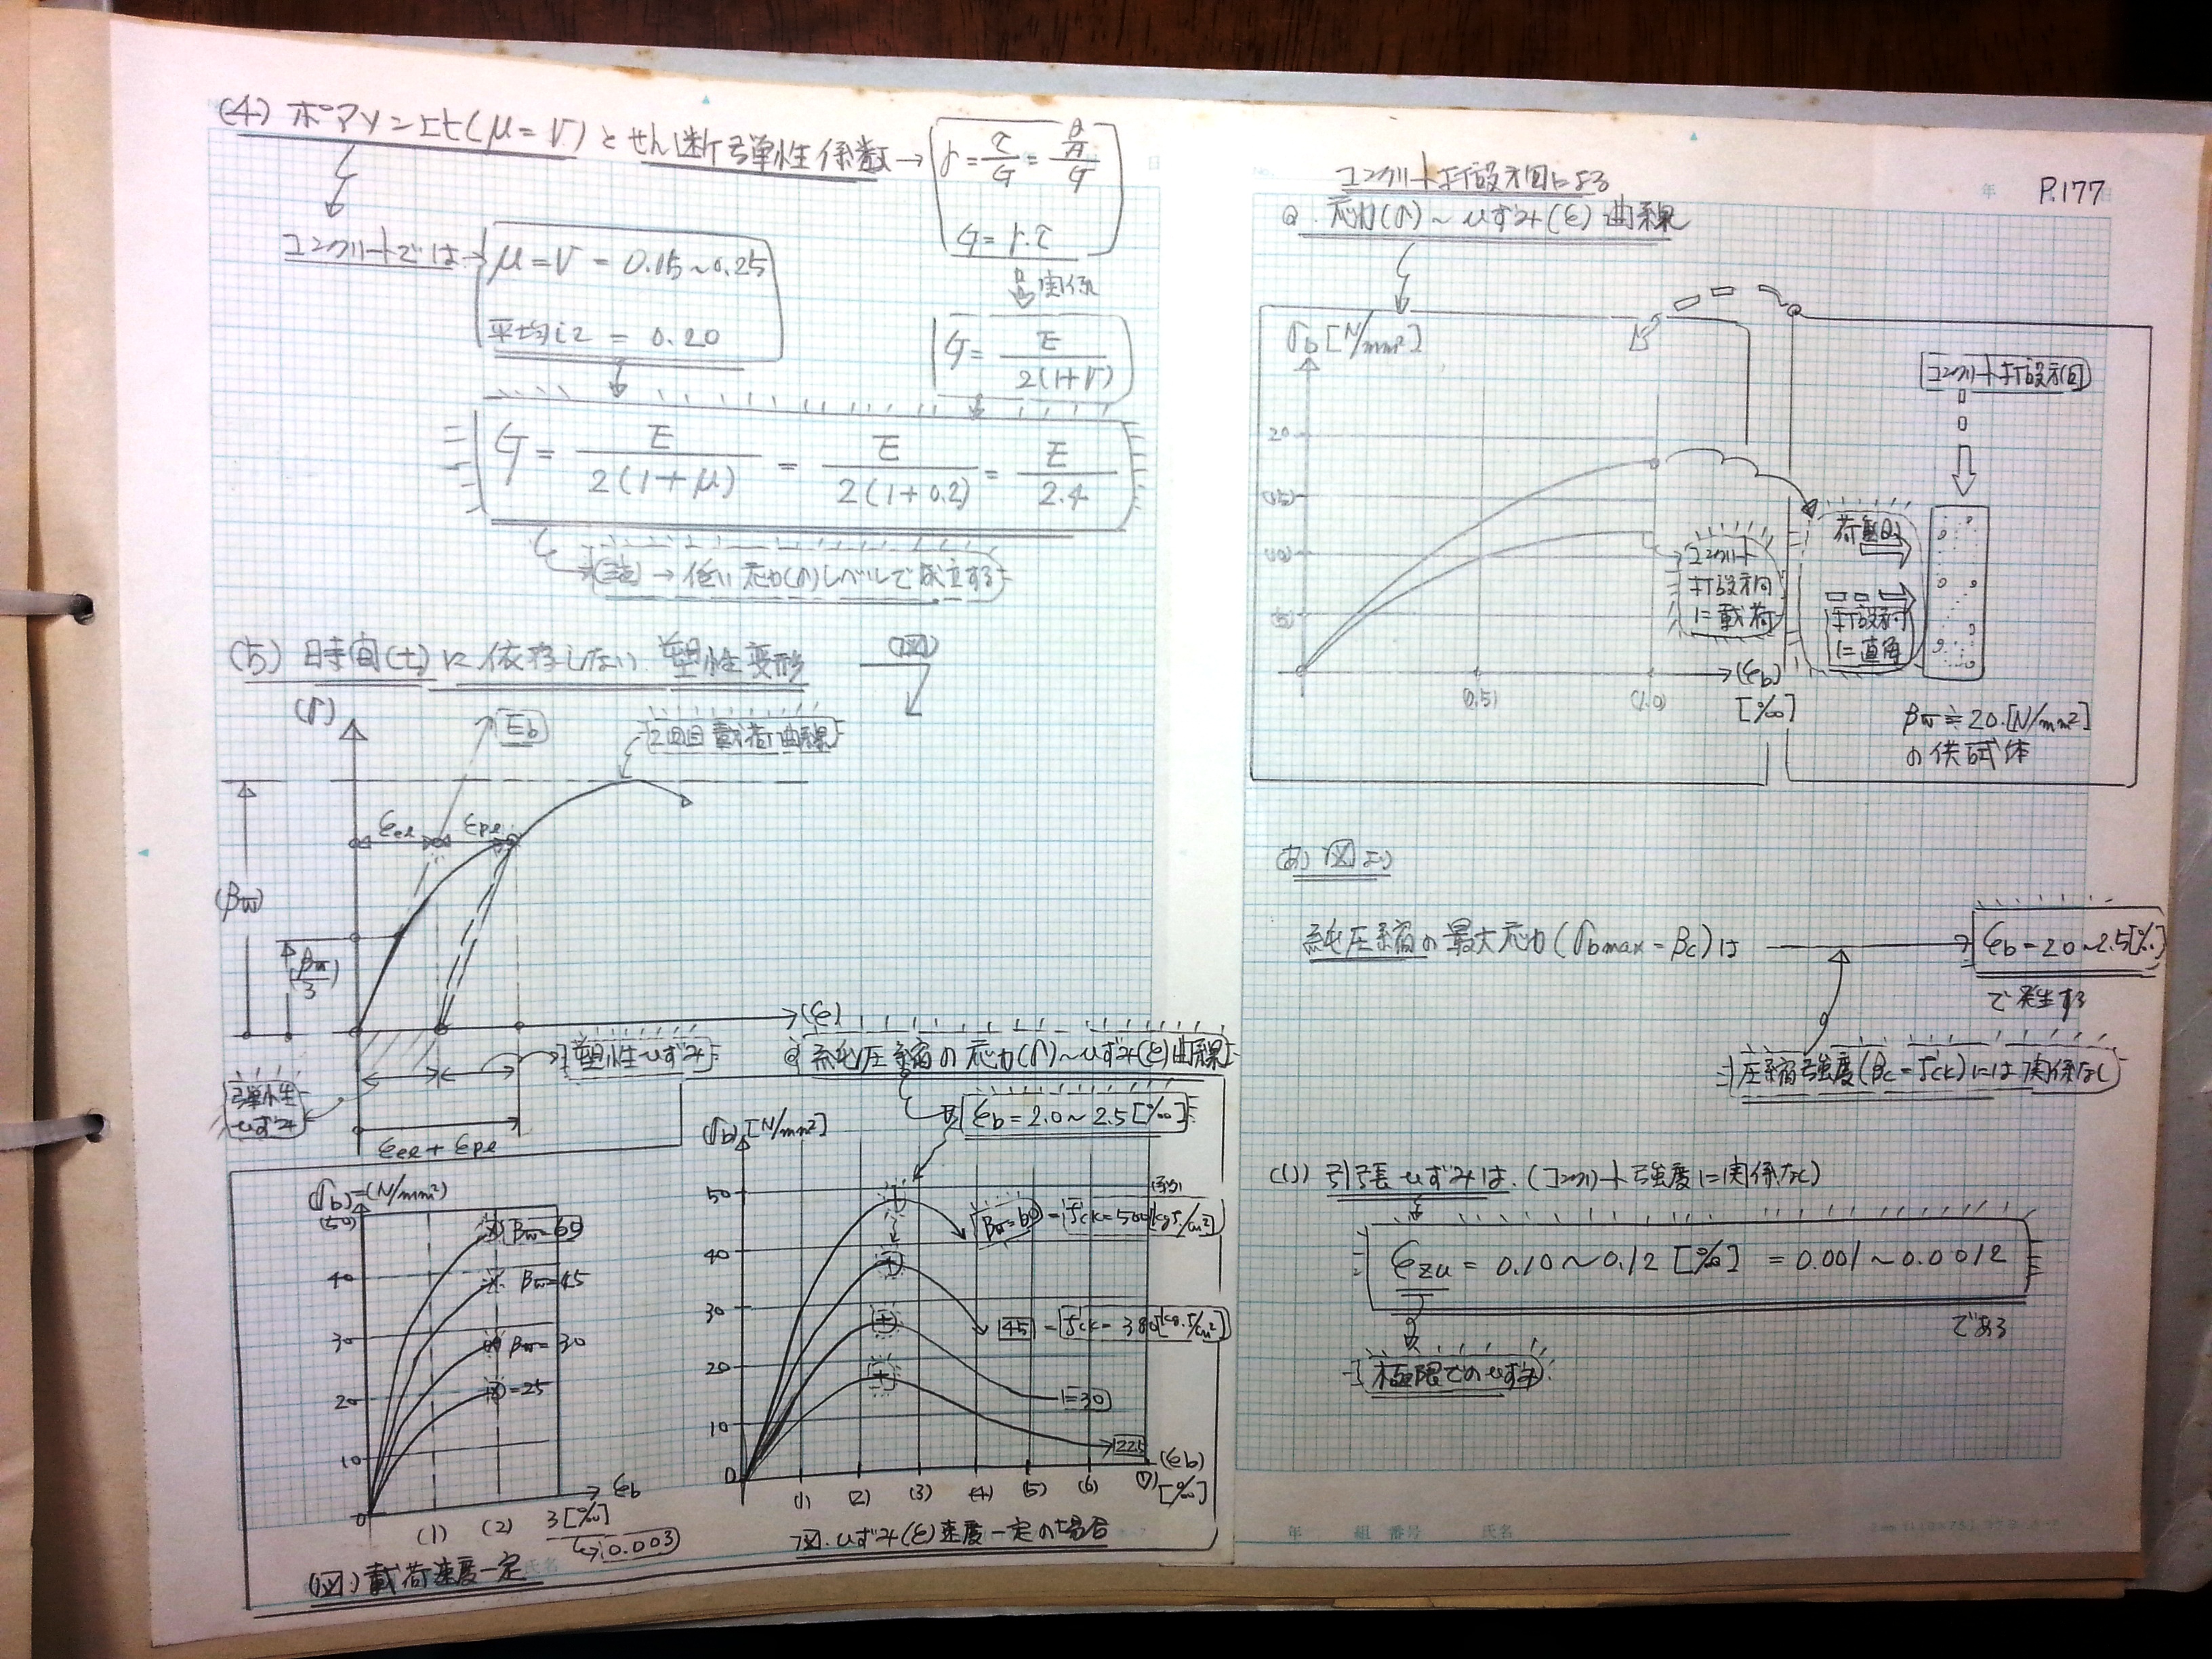 (4) ポアソン比(μ=ν)とせん断弾性係数→
γ = τ/G =
G = γ.τ
関係
コンクリートでは→
μ=ν=0.15~0.25
平均して = 0.20
G = E / 2(1+ν)
G = E / 2(1+μ) = E / 2(1+0.2) = E / 2.4
→低い応力(σ)レベルで成立する
(5) 時間(t)に依存しない塑性変形
(図)
(σ)
Eb
2回目載荷曲線
εel
εpl
(βw)
(βw/3)
(ε)
塑性ひずみ
弾性ひずみ
εel + εpl
純圧縮の応力(σ)~ひずみ(ε)曲線
εb = 2.0~2.5[‰]
(σb)=(N/mm²)
(50)
40
30
20
10
0
βw=60
βw=45
βw=30
=25
(1)
(2)
3[‰]
→(0.003)
εb
(図)載荷速度一定
(σb)[N/mm²]
50
40
30
20
10
0
βw=60 = fck=500[kgf/cm²]
45 = fck=380[kgf/cm²]
=30
225
(1)
(2)
(3)
(4)
(5)
(6)
(7)
(εb)
[‰]
図.ひずみ(ε)速度一定の場合
P.177
コンクリート打設方向による
応力(σ)~ひずみ(ε)曲線
σb[N/mm²]
20
(15)
(10)
(5)
(0.5)
(1.0)
→(εb)
[‰]
コンクリート
打設方向
に載荷
コンクリート打設方向
荷重
打設方向
に直角
βw≒20.[N/mm²]
の供試体
(あ) 図より
純圧縮の最大応力(σbmax=βc)は
εb=2.0~2.5[‰]
で発生する
圧縮強度(βc=fck)には関係なし
(い) 引張ひずみは、(コンクリート強度に関係なく)
εzu = 0.10~0.12[%] = 0.001~0.0012
である
極限でのひずみ
年 組 番号 氏名